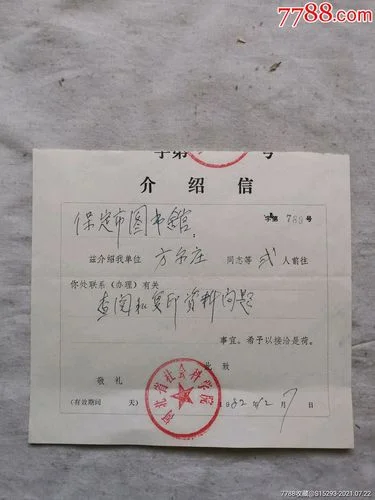 7788.com
字第 号
介绍信
保定市图书館:
字第 789 号
兹介绍我单位 方尔庄 同志等 弍 人前往
你处联系(办理)有关
查阅和复印资料问题
事宜。希予以接洽是荷。
此致
敬礼
河北省社会科学院
(有效期间 天) 1982年12月7日
7788收藏@S15293-2021.07.22